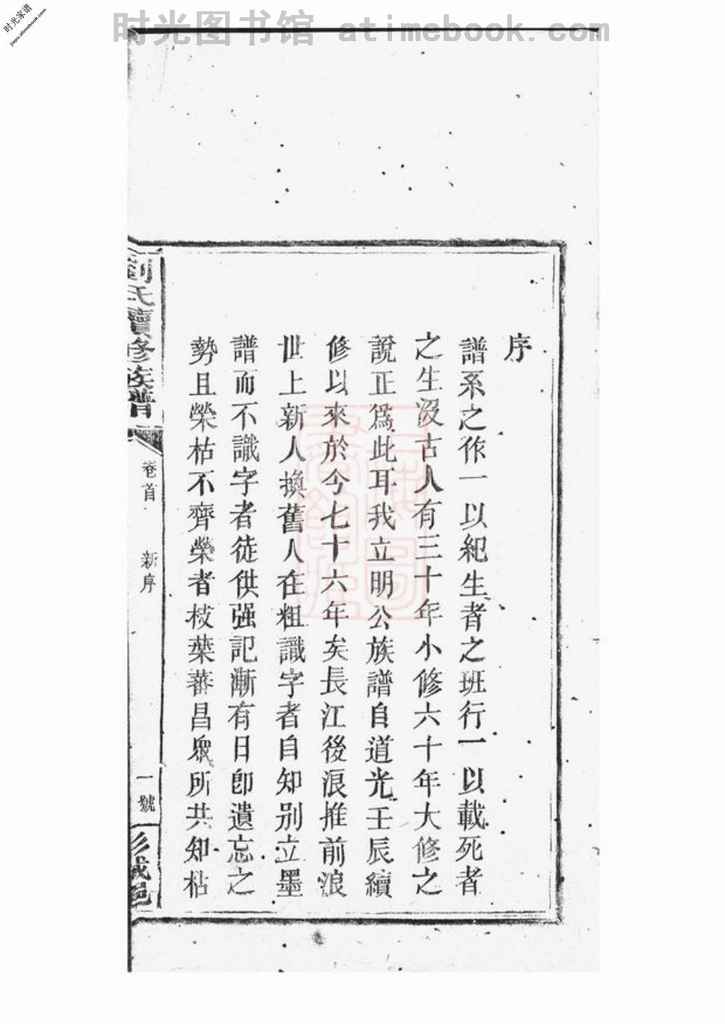 时光图书馆 atimebook.com
时光家谱
序
譜系之作一以紀生者之班行一以載死者
之生沒古人有三十年小修六十年大修之
說正爲此耳我立明公族譜自道光壬辰續
修以來於今七十六年矣長江後浪推前浪
世上新人換舊人在粗識字者自知別立墨
譜而不識字者徒供强記漸有日卽遺忘之
勢且榮枯不齊榮者枝葉蕃昌眾所共知枯
劉氏續修族譜
卷首
新序
一號
彭城邑